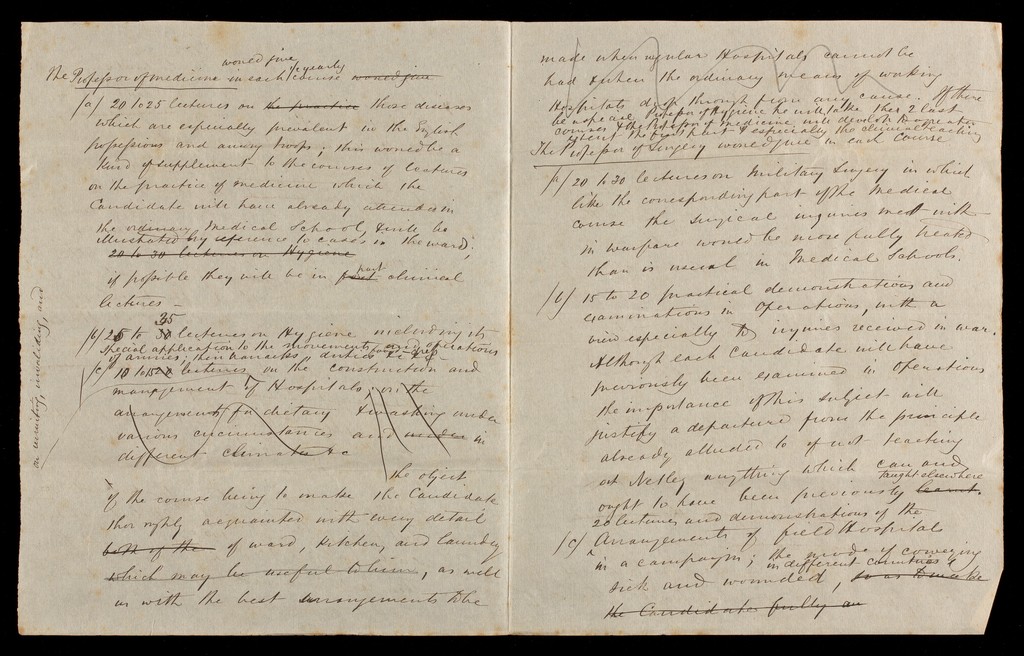 would give
The Professor of medicine in each yearly course would give
(a) 20 to 25 lectures on the practice those diseases
which are especially prevalent in the English
possessions and among troops; this would be a
kind of supplement to the courses of lectures
on the practice of medicine which the
Candidate will have already attended in
the ordinary Medical School, & will be
illustrated by reference to cases in the ward;
20 to 30 lectures on Hygiene
if possible they will be in part clinical
lectures –
35
(b) 25 to 30 lectures on Hygiene including its
special application to the movements and operations
of armies; their barracks, duties &c
(c) 10 to 15 lectures on the construction and
management of Hospitals; on the
arrangements for dietary & washing under
various circumstances and in
different climates &c
the object
of the course being to make the Candidate
thoroughly acquainted with every detail
both of the of ward, kitchen, and laundry
which may be useful to him, as well
as with the best arrangements to be
on amounting, including, and
made when regular Hospitals cannot be
had & when the ordinary means of working
Hospitals drop through from any cause. If there
be a special Professor of Hygiene he will take the 2 last
courses & the Professor of medicine will develop to a greater
extent the first part & especially the clinical teaching
The Professor of Surgery would give in each course
(a) 20 to 30 lectures on Military Surgery in which
like the corresponding part of the Medical
course the surgical injuries met with
in warfare would be more fully treated
than is usual in Medical Schools.
(b) 15 to 20 practical demonstrations and
examinations in Operations, with a
view especially to injuries received in war.
Although each Candidate will have
previously been examined in Operations
the importance of this subject will
justify a departure from the principle
already alluded to of not teaching
at Netley anything which can and
ought to have been previously learnt. taught elsewhere
20 lectures and demonstrations of the
(c) Arrangements of field Hospitals
in a campaign; the mode of conveying
in different countries
sick and wounded, so as to make
the Candidates fully au